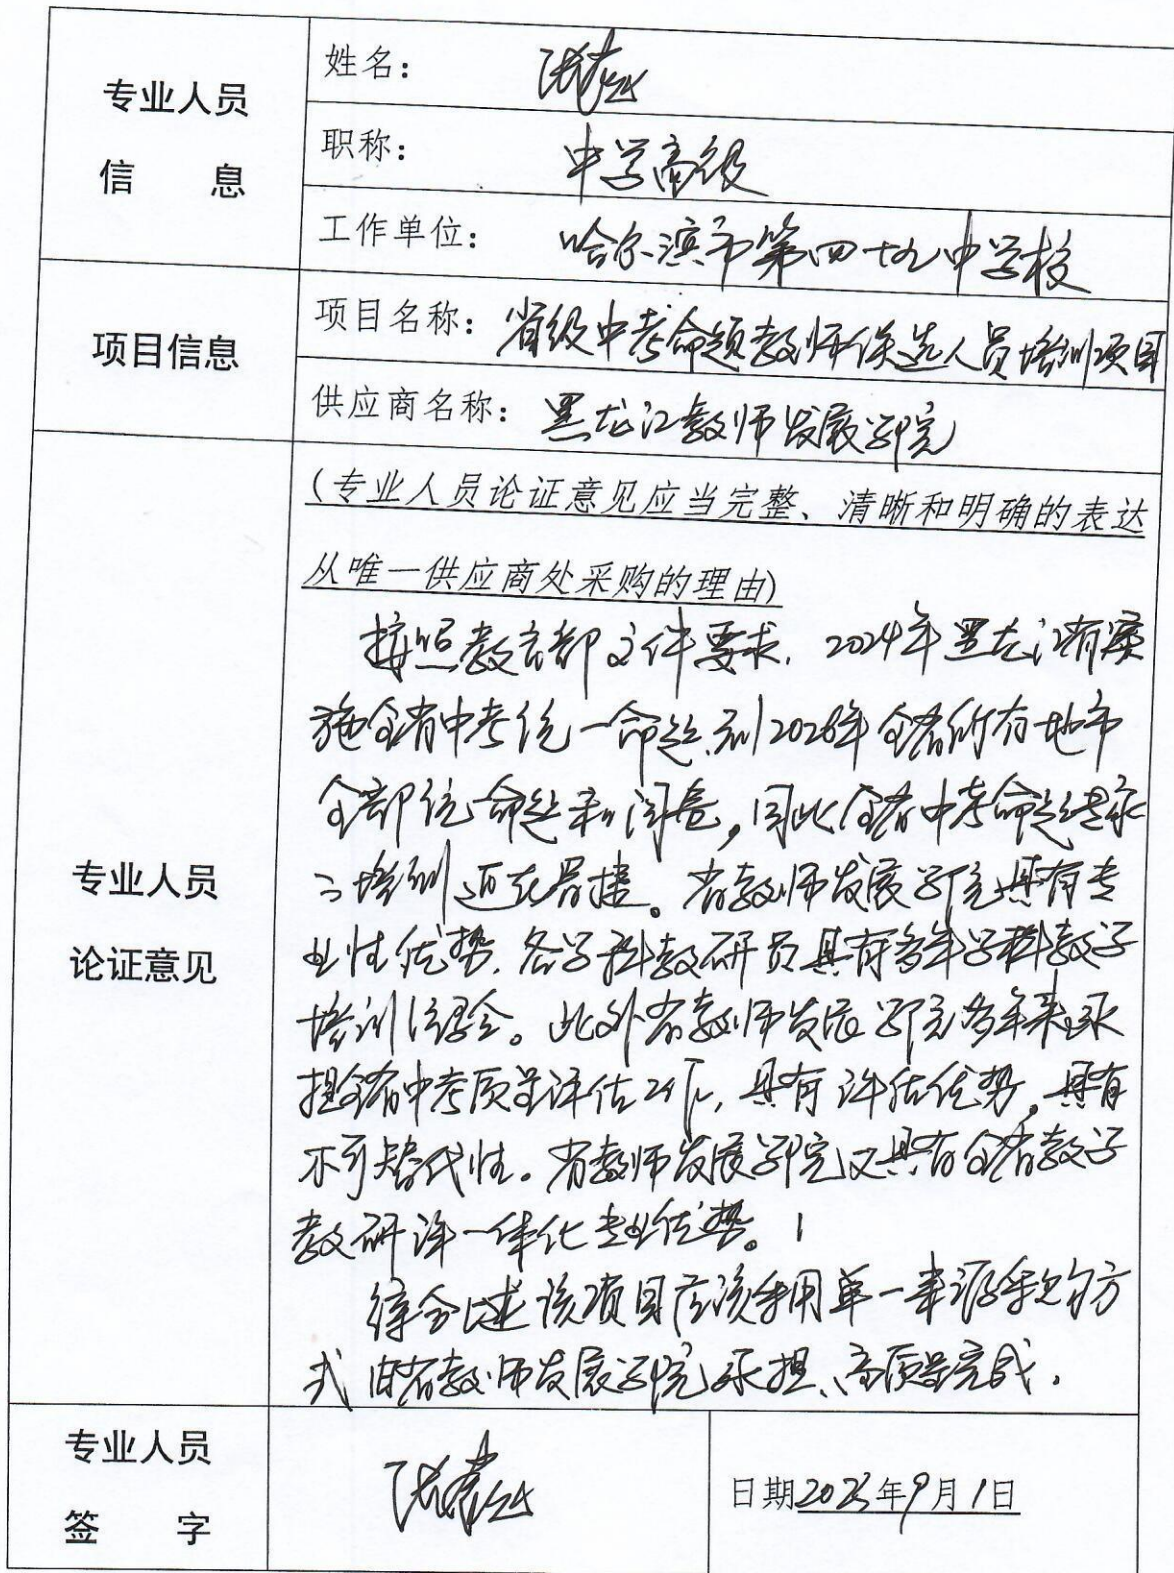 专业人员
信 息
姓名：
职称： 中学高级
工作单位： 哈尔滨市第四十九中学校
项目信息
项目名称：省级中考命题教师候选人员培训项目
供应商名称：黑龙江教师发展学院
专业人员
论证意见
（专业人员论证意见应当完整、清晰和明确的表达
从唯一供应商处采购的理由）
按照教育部文件要求，2024年黑龙江省实
施全省中考统一命题，到2026年全省所有地市
全部统一命题和阅卷，因此全省中考命题
培训迫在眉睫。省教师发展学院具有专
业性优势，各学科教研员具有多年学科教学
培训经验。此外省教师发展学院多年来承
担全省中考质量评估工作，具有评估优势，具有
不可替代性。省教师发展学院又具有全省教学
教研评一体化专业优势。
综合上述该项目应该采用单一来源采购方
式 由省教师发展学院承担、高质量完成。
专业人员
签 字
日期2023年9月1日